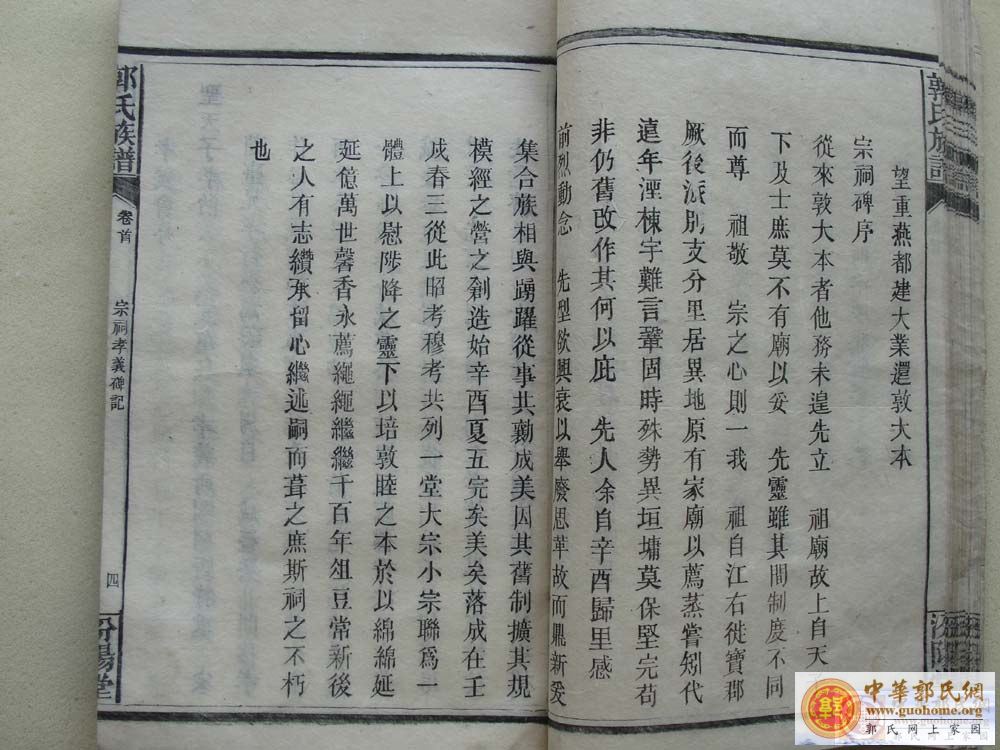 郭氏族譜
望重燕都建大業還敦大本
宗祠碑序
從來敦大本者他務未遑先立 祖廟故上自天子
下及士庶莫不有廟以妥 先靈雖其間制度不同
而尊 祖敬 宗之心則一我 祖自江右徙寶郡
厥後派別支分里居異地原有家廟以薦蒸嘗矧代
遠年湮棟宇難言鞏固時殊勢異垣墉莫保堅完苟
非仍舊改作其何以庇 先人余自辛酉歸里感
前烈動念 先型欲興衰以舉廢思革故而鼎新爰
集合族相與踴躍從事共勷成美因其舊制擴其規
模經之營之創造始辛酉夏五完矣美矣落成在壬
戌春三從此昭考穆考共列一堂大宗小宗聯為一
體上以慰陟降之靈下以培敦睦之本於以綿綿延
延億萬世馨香永薦繩繩繼繼千百年俎豆常新後
之人有志纘承留心繼述嗣而葺之庶斯祠之不朽
也
郭氏族譜
卷首
宗祠孝義碑記
四
汾陽堂
中華郭氏網
www.guohome.org
郭氏網上家園